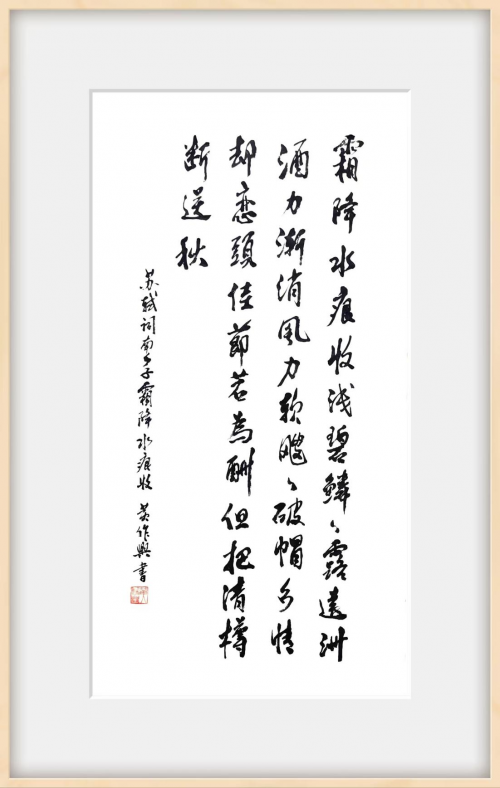 霜降水痕收浅碧鳞々露遠洲
酒力漸消風力软飕々破帽多情
却恋頭佳節若為酬但把清樽
断送秋
苏轼词南乡子霜降水痕收 黄作興書